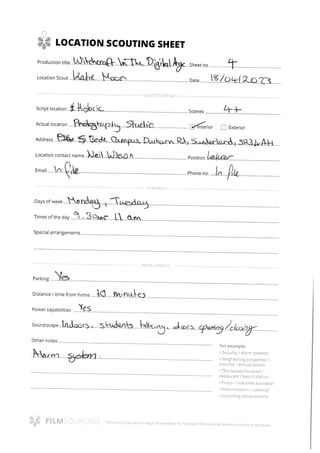 LOCATION SCOUTING SHEET
Production title Witchcraft In The Digital Age Sheet no. 4
Location Scout Katie Moon Date 18/04/2023
Script location Historic Scenes 4++
Actual location Photography Studio ✓ Interior □ Exterior
Address 5 Bede Campus, Durham Rd, Sunderland, SR3 4AH
Location contact name Neil Wilson Position Lecturer
Email In file Phone no. In file
Days of week Monday, Tuesday
Times of the day 9.30am 11 am
Special arrangements
Parking Yes
Distance / time from home 10 minutes
Power capabilities Yes
Soundscape Indoors. students talking, doors opening/closing
Other notes
Alarm system.
For example:
• Security / alarm systems
• Neighboring properties /
activities / annual events
• The nearest hospital /
restaurant / petrol station
• Props / costumes available?
• Restoration / catering?
• Upcoming developments
FILMSOURCING